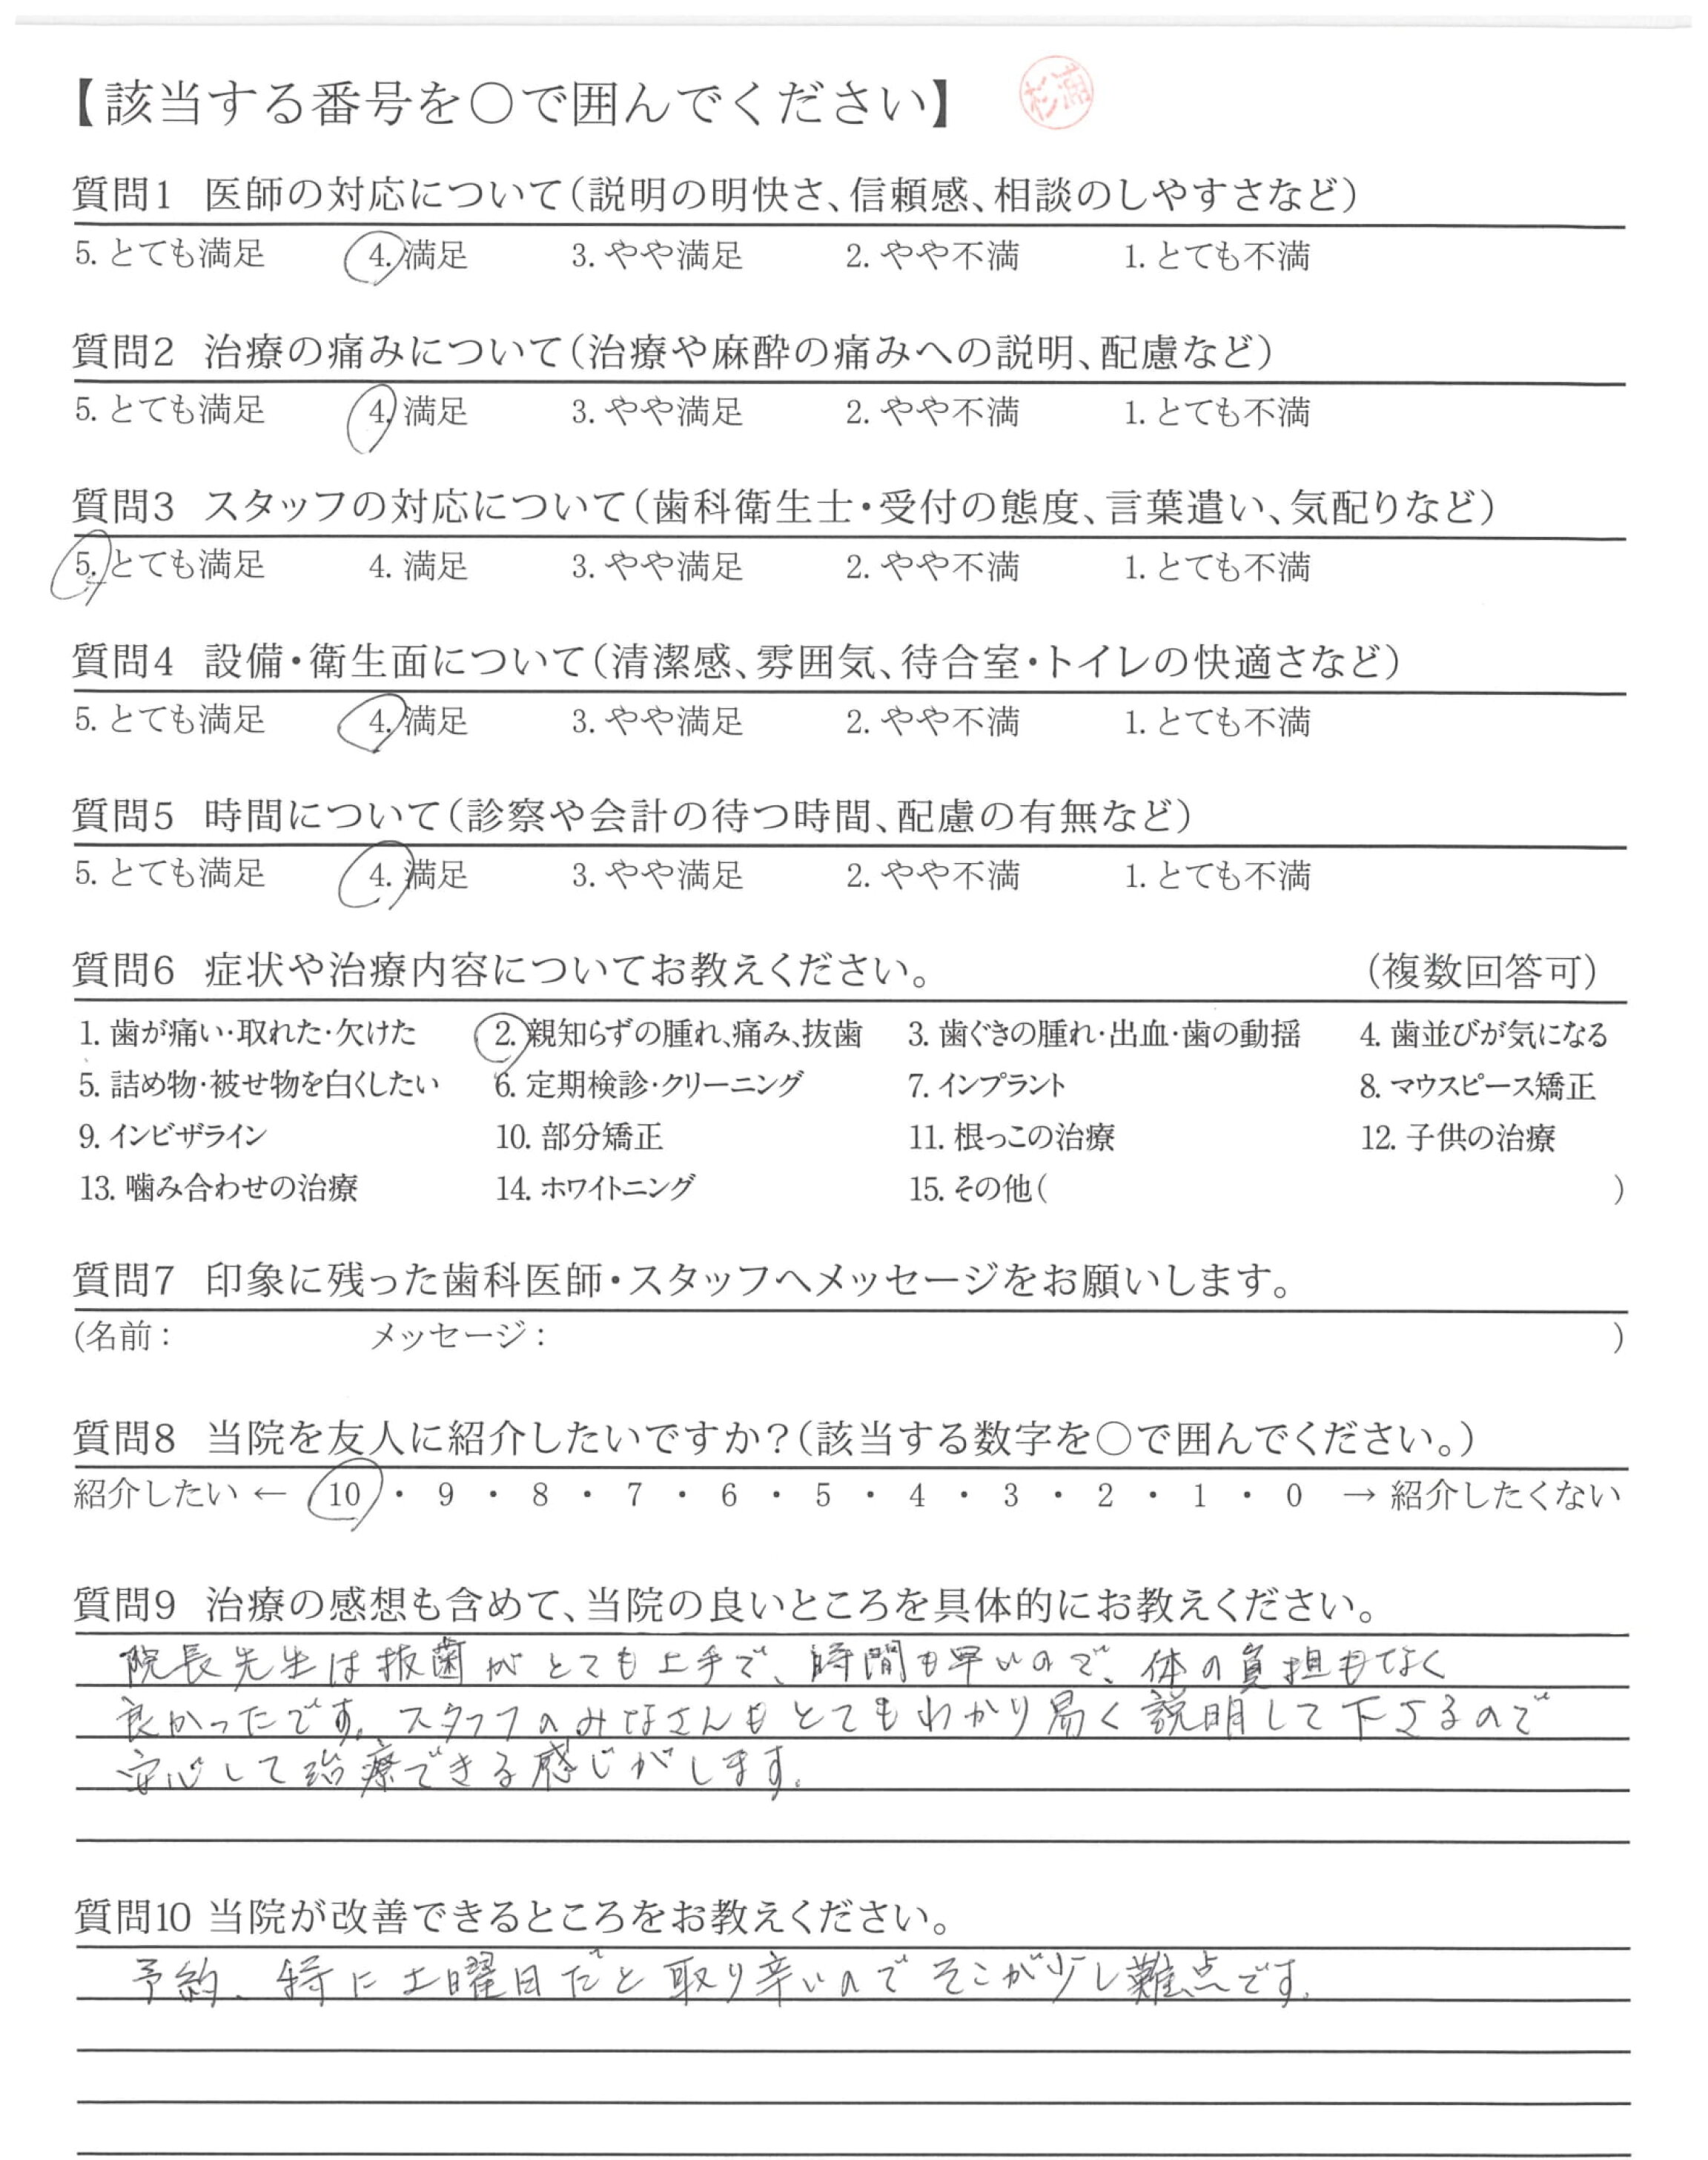 【該当する番号を○で囲んでください】
質問1 医師の対応について(説明の明快さ、信頼感、相談のしやすさなど)
5. とても満足 4. 満足 3. やや満足 2. やや不満 1. とても不満
質問2 治療の痛みについて(治療や麻酔の痛みへの説明、配慮など)
5. とても満足 4. 満足 3. やや満足 2. やや不満 1. とても不満
質問3 スタッフの対応について(歯科衛生士・受付の態度、言葉遣い、気配りなど)
5. とても満足 4. 満足 3. やや満足 2. やや不満 1. とても不満
質問4 設備・衛生面について(清潔感、雰囲気、待合室・トイレの快適さなど)
5. とても満足 4. 満足 3. やや満足 2. やや不満 1. とても不満
質問5 時間について(診察や会計の待つ時間、配慮の有無など)
5. とても満足 4. 満足 3. やや満足 2. やや不満 1. とても不満
質問6 症状や治療内容についてお教えください。 (複数回答可)
1. 歯が痛い・取れた・欠けた 2. 親知らずの腫れ、痛み、抜歯 3. 歯ぐきの腫れ・出血・歯の動揺 4. 歯並びが気になる
5. 詰め物・被せ物を白くしたい 6. 定期検診・クリーニング 7. インプラント 8. マウスピース矯正
9. インビザライン 10. 部分矯正 11. 根っこの治療 12. 子供の治療
13. 噛み合わせの治療 14. ホワイトニング 15. その他( )
質問7 印象に残った歯科医師・スタッフへメッセージをお願いします。
(名前: メッセージ: )
質問8 当院を友人に紹介したいですか?(該当する数字を○で囲んでください。)
紹介したい ← 10 ・ 9 ・ 8 ・ 7 ・ 6 ・ 5 ・ 4 ・ 3 ・ 2 ・ 1 ・ 0 → 紹介したくない
質問9 治療の感想も含めて、当院の良いところを具体的にお教えください。
院長先生は抜歯がとても上手で、時間も早いので、体の負担もなく
良かったです。スタッフのみなさんもとてもわかり易く説明して下さるので
安心して治療できる感じがします。
質問10 当院が改善できるところをお教えください。
予約、特に土曜日だと取り辛いのでそこが少し難点です。